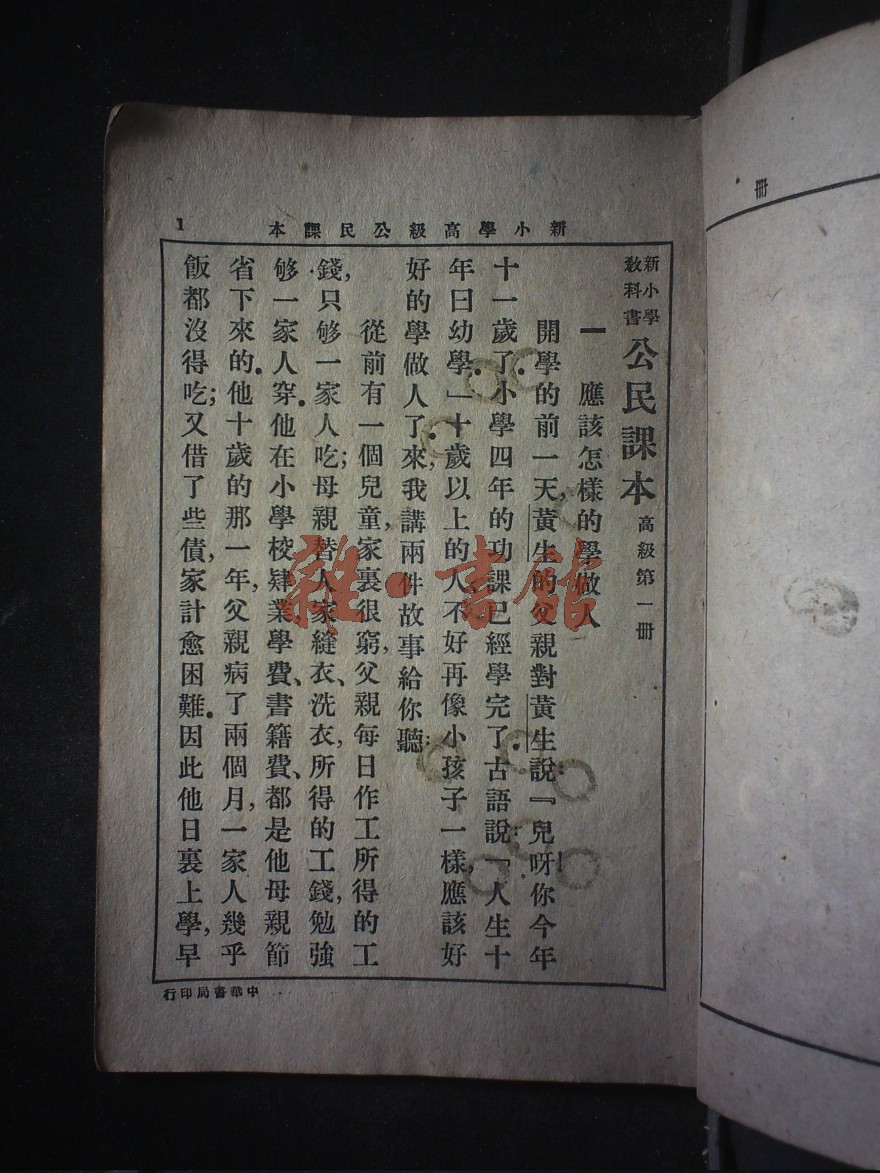 新小學高級公民課本
1
新小學
教科書
公民課本 高級第一冊
一 應該怎樣的學做人
開學的前一天,黃生的父親對黃生說:『兒呀!你今年
十一歲了.小學四年的功課已經學完了.古語說:「人生十
年曰幼學.」十歲以上的人,不好再像小孩子一樣,應該好
好的學做人了.來,我講兩件故事給你聽:
從前有一個兒童,家裏很窮,父親每日作工所得的工
錢,只够一家人吃;母親替人家縫衣、洗衣,所得的工錢,勉強
够一家人穿.他在小學校肄業,學費、書籍費、都是他母親節
省下來的.他十歲的那一年,父親病了兩個月,一家人幾乎
飯都沒得吃;又借了些債,家計愈困難.因此他日裏上學,早
中華書局印行
冊
雜·書館